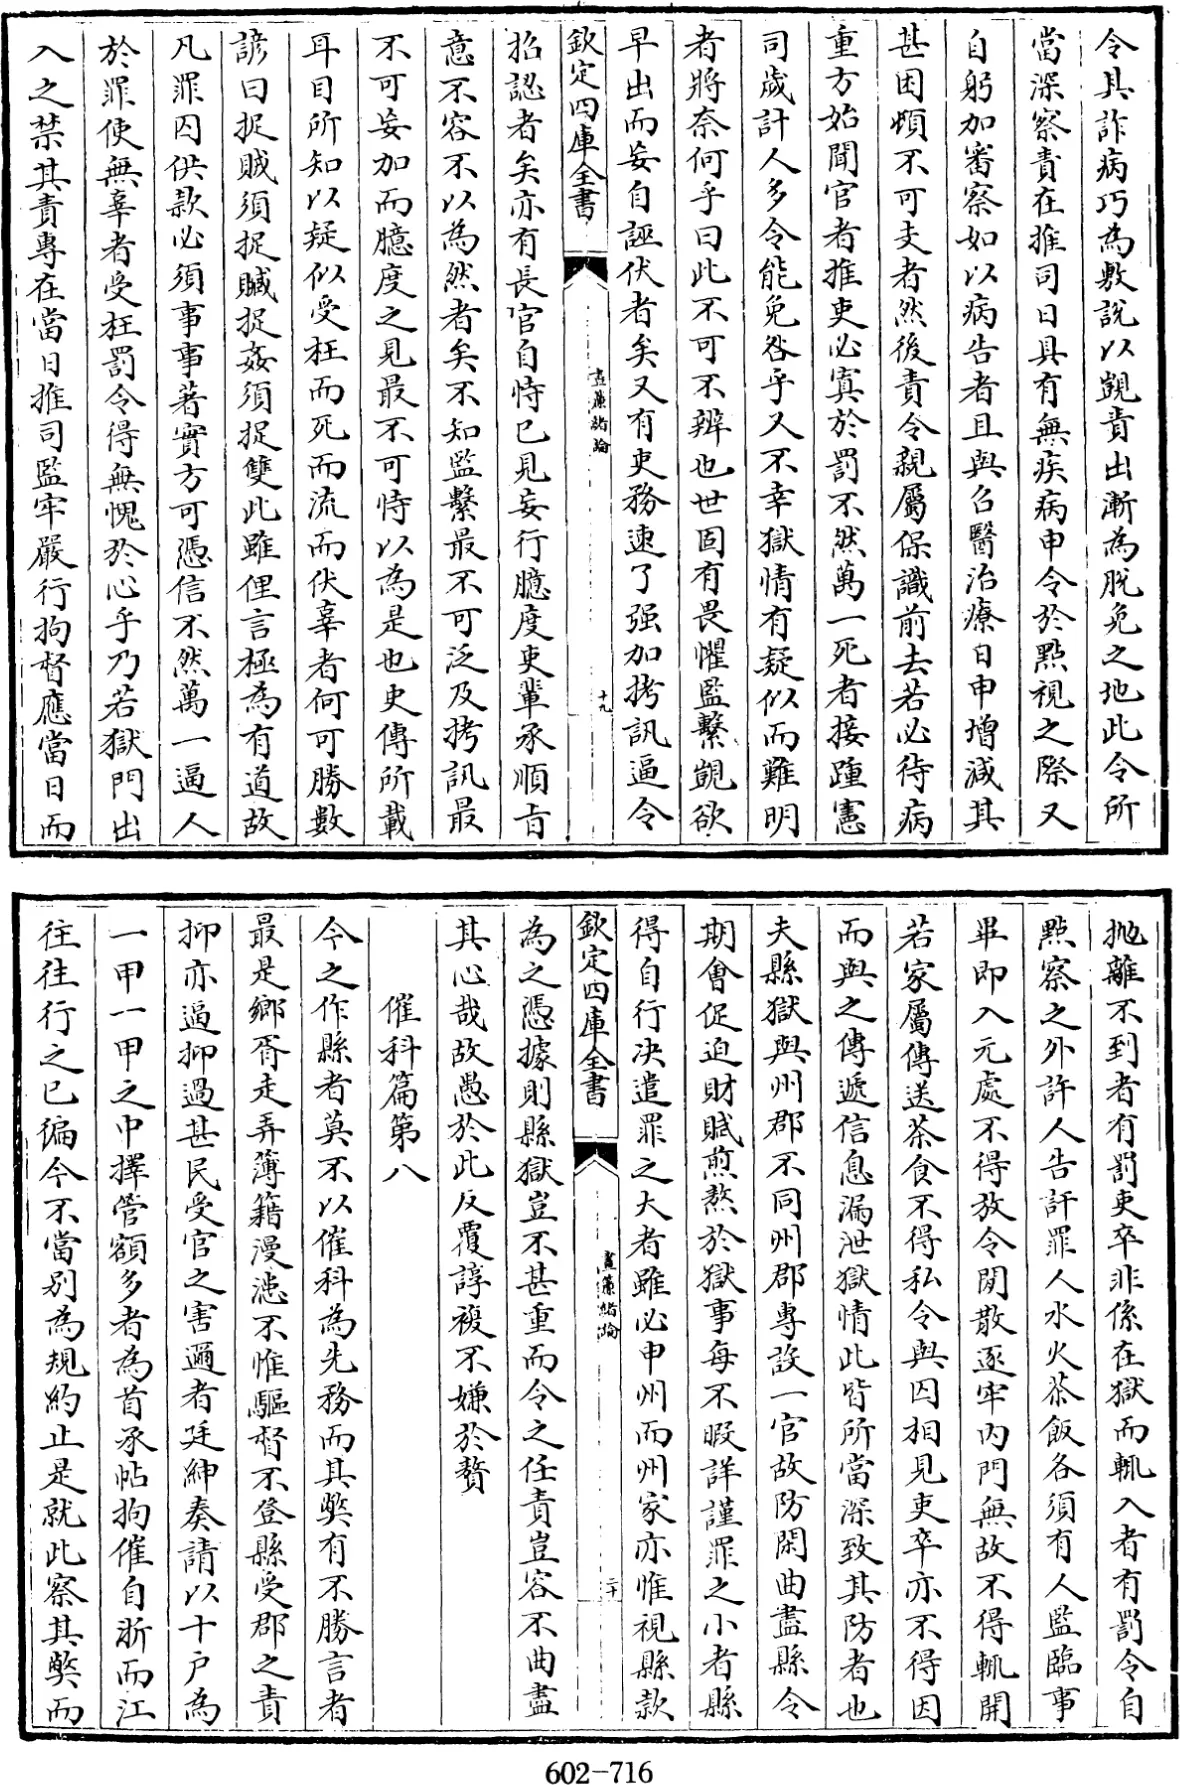 令具詐病巧為敷説以覬責出漸為脱免之地此令所
當深察責在推司日具有無疾病申令於點視之際又
自躬加審察如以病告者且與召醫治療日申增減其
甚困頓不可支者然後責令親屬保識前去若必待病
重方始聞官者推吏必寘於罰不然萬一死者接踵憲
司歲計人多令能免咎乎又不幸獄情有疑似而難明
者將奈何乎曰此不可不辨也世固有畏懼監繫覬欲
早出而妄自誣伏者矣又有吏務速了强加拷訊逼令
欽定四庫全書
晝簾緒論
十九
招認者矣亦有長官自恃已見妄行臆度吏輩承順旨
意不容不以為然者矣不知監繫最不可泛及拷訊最
不可妄加而臆度之見最不可恃以為是也史傳所載
耳目所知以疑似受枉而死而流而伏辜者何可勝數
諺曰捉賊須捉贓捉姦須捉雙此雖俚言極為有道故
凡罪囚供款必須事事著實方可憑信不然萬一逼人
於罪使無辜者受枉罰令得無愧於心乎乃若獄門出
入之禁其責專在當日推司監牢嚴行拘督應當日而
抛離不到者有罰吏卒非係在獄而輒入者有罰令自
點察之外許人告訐罪人水火茶飯各須有人監臨事
畢即入元處不得放令閒散逐牢内門無故不得輒開
若家屬傳送茶食不得私令與囚相見吏卒亦不得因
而與之傳遞信息漏泄獄情此皆所當深致其防者也
夫縣獄與州郡不同州郡專設一官故防閑曲盡縣令
期會促迫財賦煎熬於獄事每不暇詳謹罪之小者縣
得自行决遣罪之大者雖必申州而州家亦惟視縣款
欽定四庫全書
晝簾緒論
二十
為之憑據則縣獄豈不甚重而令之任責豈容不曲盡
其心哉故愚於此反覆諄複不嫌於贅
催科篇第八
今之作縣者莫不以催科為先務而其弊有不勝言者
最是鄉胥走弄簿籍漫漶不惟驅督不登縣受郡之責
抑亦逼抑過甚民受官之害邇者廷紳奏請以十户為
一甲一甲之中擇管額多者為首承帖拘催自浙而江
往往行之已徧今不當别為規約止是就此察其弊而
602-716